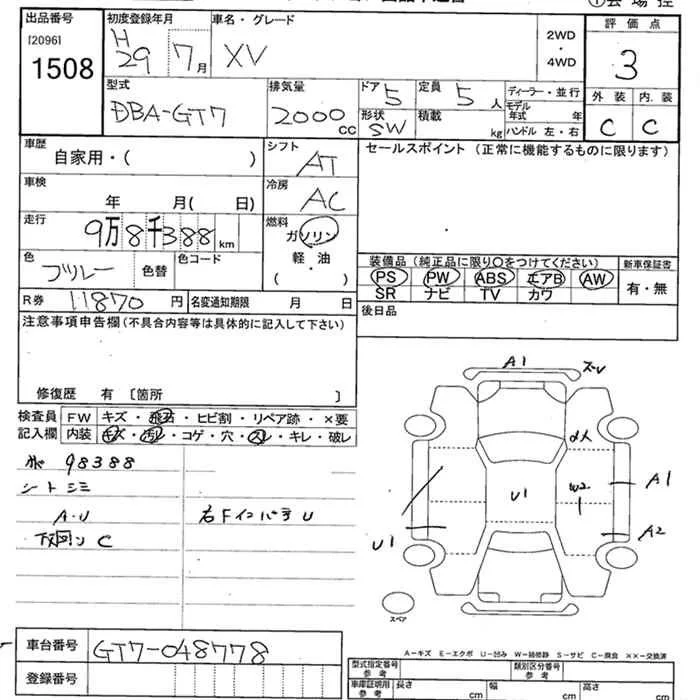 出品番号
[2096]
1508
初度登録年月
H
29 7月
車名・グレード
XV
2WD
・
4WD
評価点
3
外装 内装
C C
型式
DBA-GT7
排気量
2000 cc
ドア
5
定員
5 人
形状
SW
積載
kg
ディーラー・並行
モデル
年式 年
ハンドル 左・右
車歴
自家用・( )
シフト
AT
セールスポイント(正常に機能するものに限ります)
車検
年 月( 日)
冷房
AC
走行
9万8千388 km
燃料
ガソリン
軽油
・
( )
色
色替
色コード
装備品(純正品に限り○をつけてください)
PS PW ABS エアB AW
SR ナビ TV カワ
新車保証書
有・無
R券 11870 円
名変通知期限 月 日
後日品
注意事項申告欄(不具合内容等は具体的に記入して下さい)
修復歴 有 〔箇所 〕
検査員
記入欄
FW キズ・飛石・ヒビ割・リペア跡・×要
内装 キズ・汚レ・コゲ・穴・スレ・キレ・破レ
98388
シートシミ
A・U
右FインパネU
下回りC
A1
ズレ
U1
W2
A1
A2
U1
スペア
A-キズ E-エクボ U-凹み W-補修跡 S-サビ C-腐食 XX-交換済
車台番号
GT7-048778
登録番号
型式指定番号
参考
類別区分番号
参考
車庫証明用
参考
長さ cm
幅 cm
高さ cm